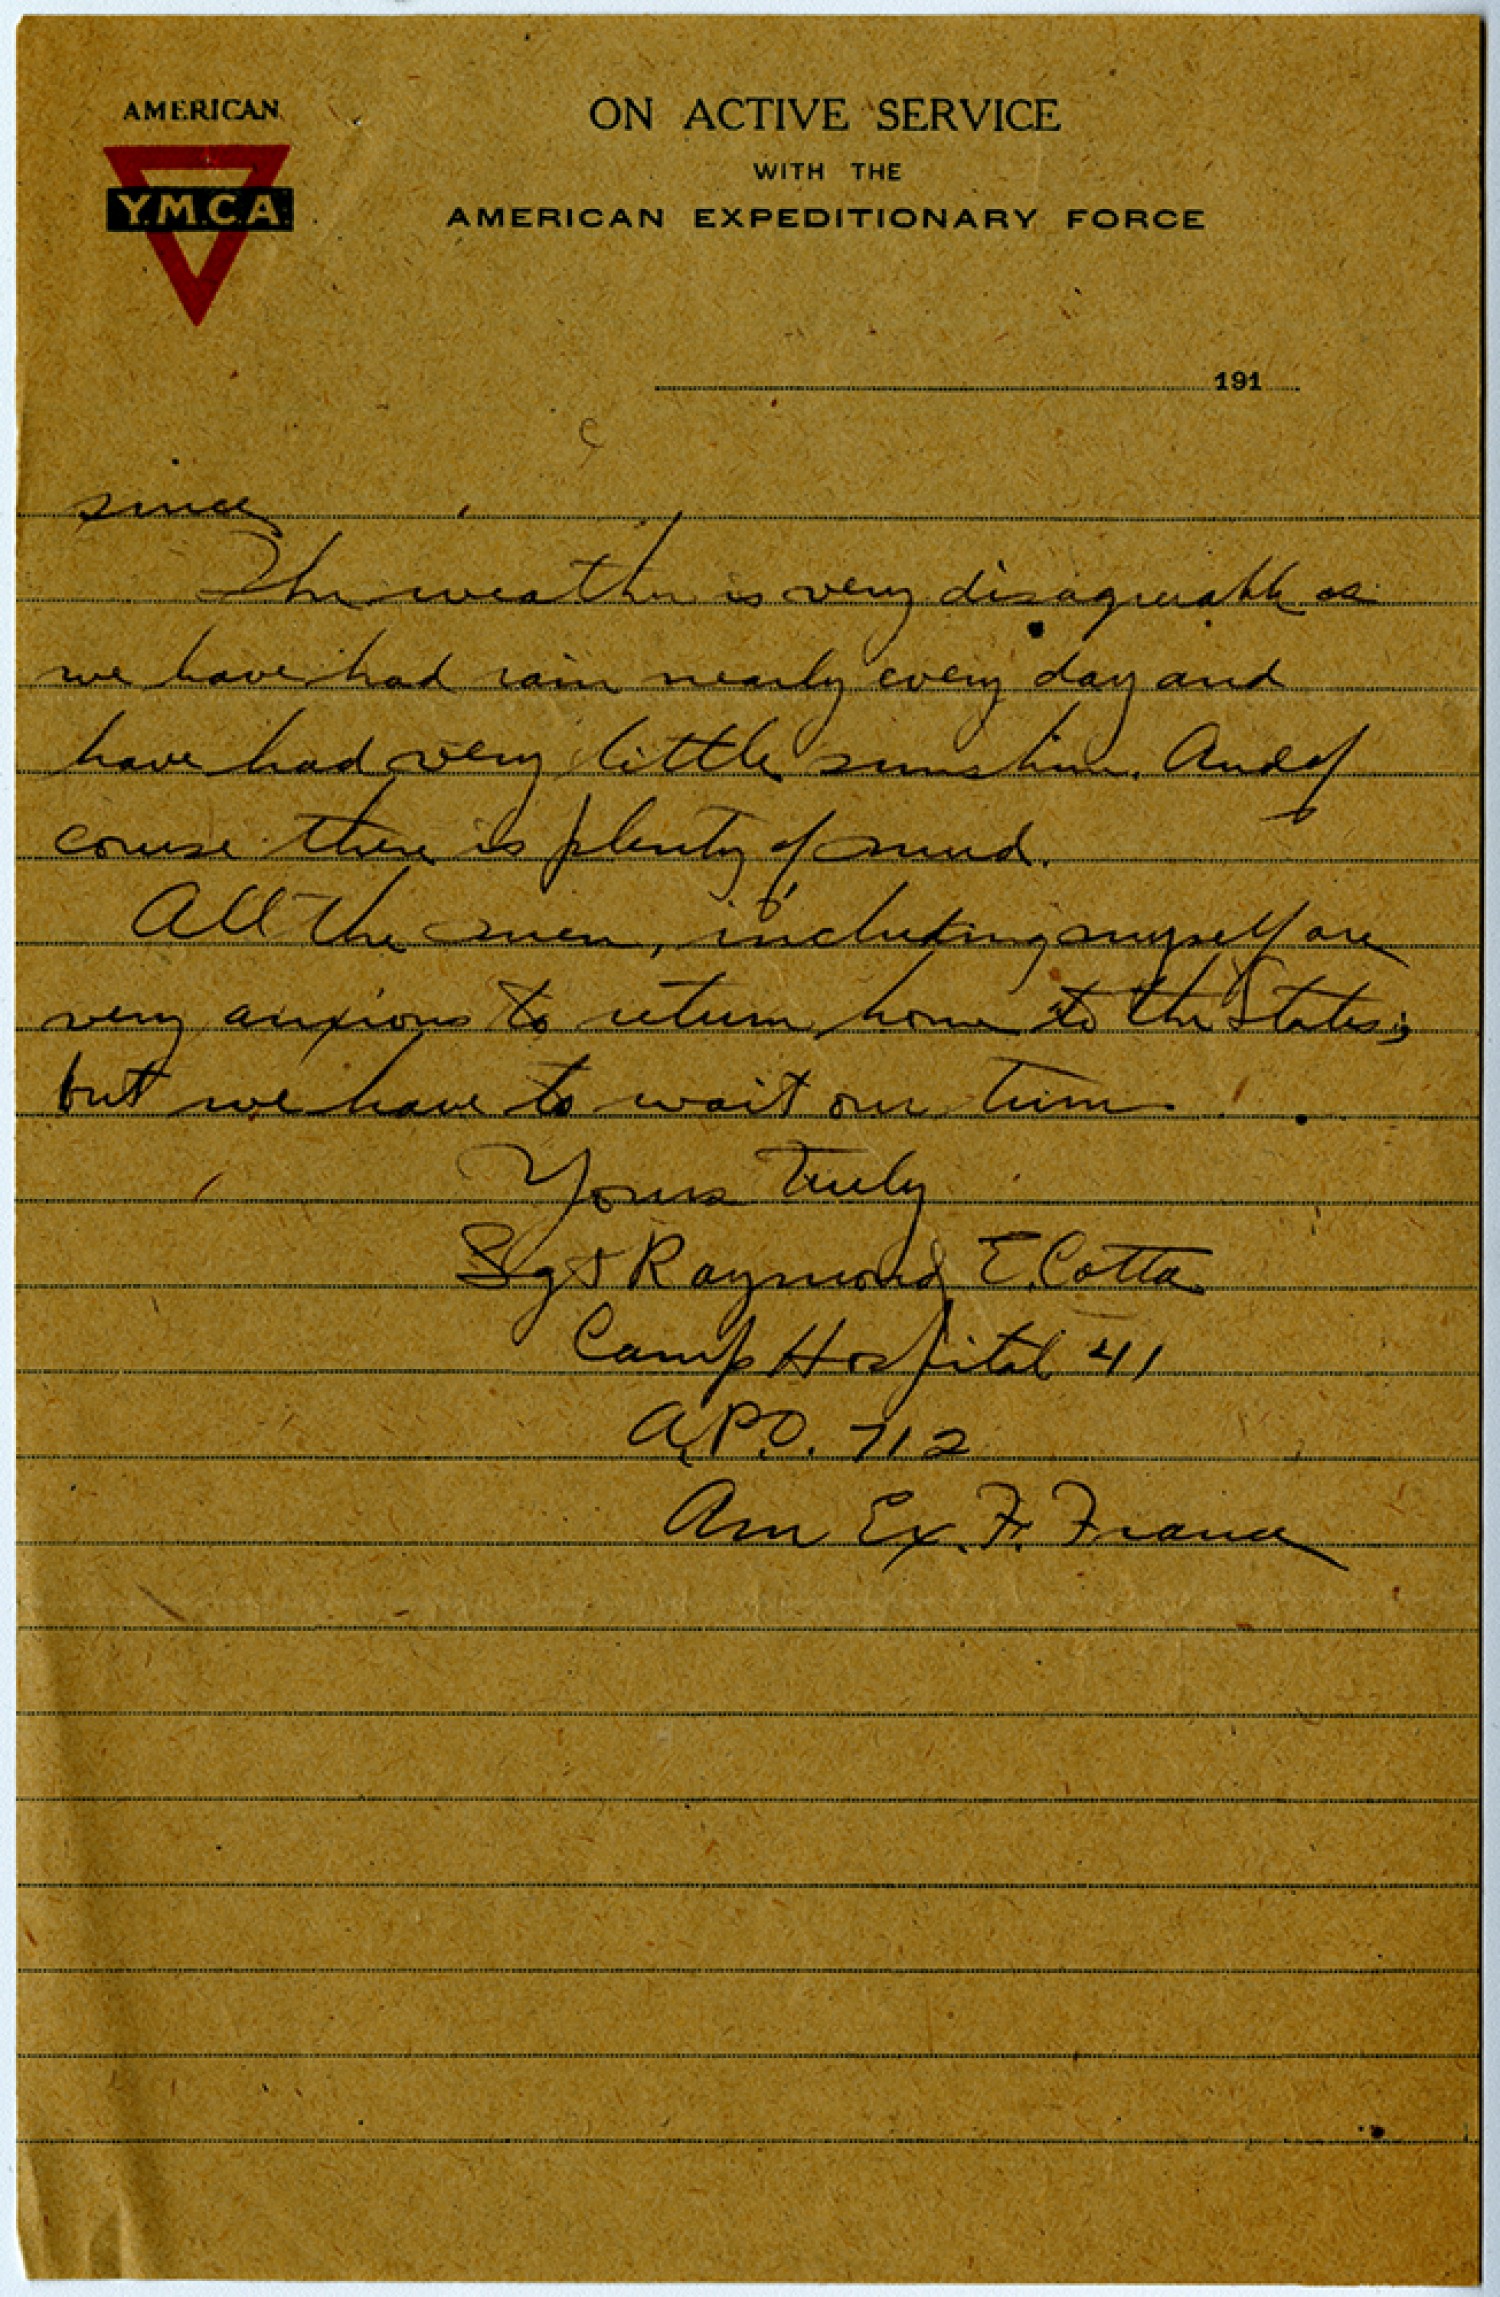 AMERICAN
Y.M.C.A.
ON ACTIVE SERVICE
WITH THE
AMERICAN EXPEDITIONARY FORCE
191
since
The weather is very disagreeable as
we have had rain nearly every day and
have had very little sunshine. And of
course there is plenty of mud.
All the men, including myself are
very anxious to return home to the States;
but we have to wait our turn.
Yours truly
Sgt Raymond E. Cotta
Camp Hospital 41
A.P.O. 712
Am Ex. F. France